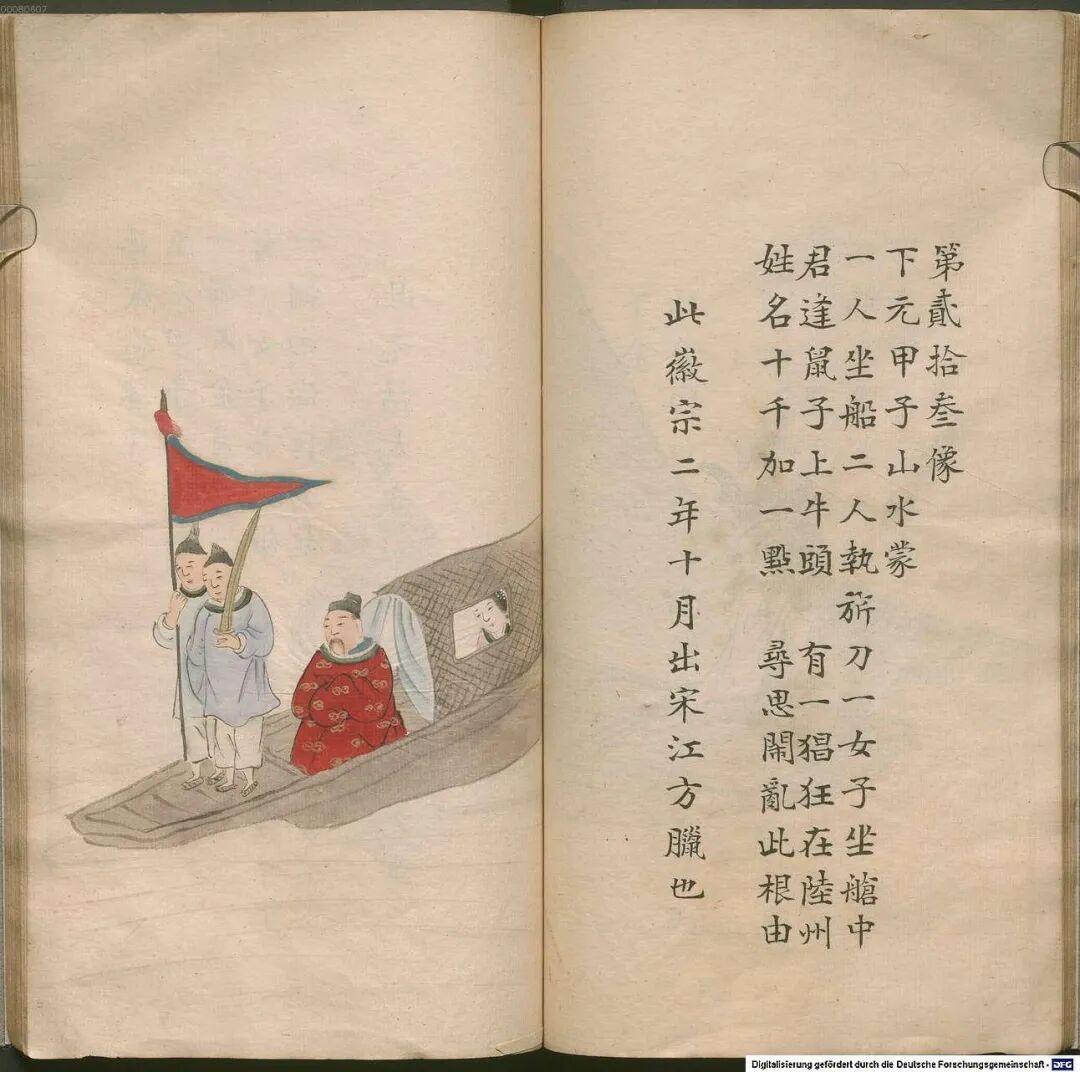 第貳拾叁像
下元甲子山水蒙
一人坐船二人執旂刀一女子坐艙中
君逢鼠子上牛頭 有一猖狂在陸州
姓名十千加一點 尋思鬧亂此根由
此徽宗二年十月出宋江方臘也
00080607
Digitalisierung gefördert durch die Deutsche Forschungsgemeinschaft - DFG